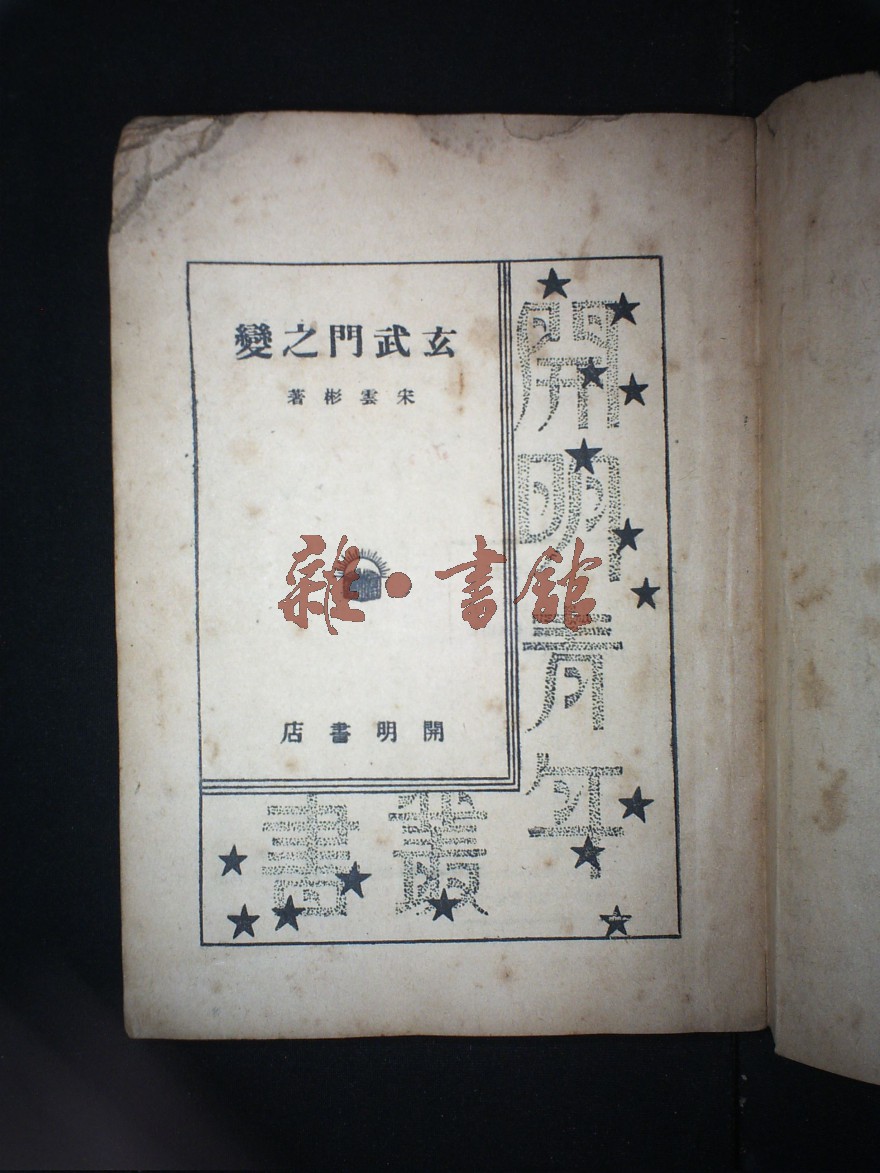 玄武門之變
宋雲彬著
開明書店
開明青年
叢書
雜·書館